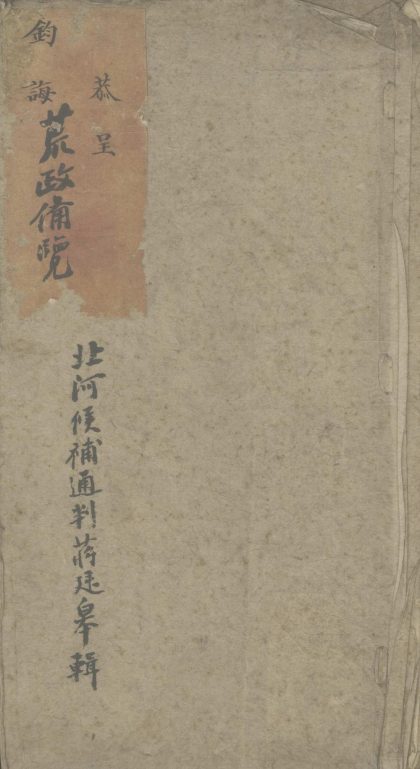 恭呈
鈞誨
荒政備覽
北河候補通判蔣廷皋輯